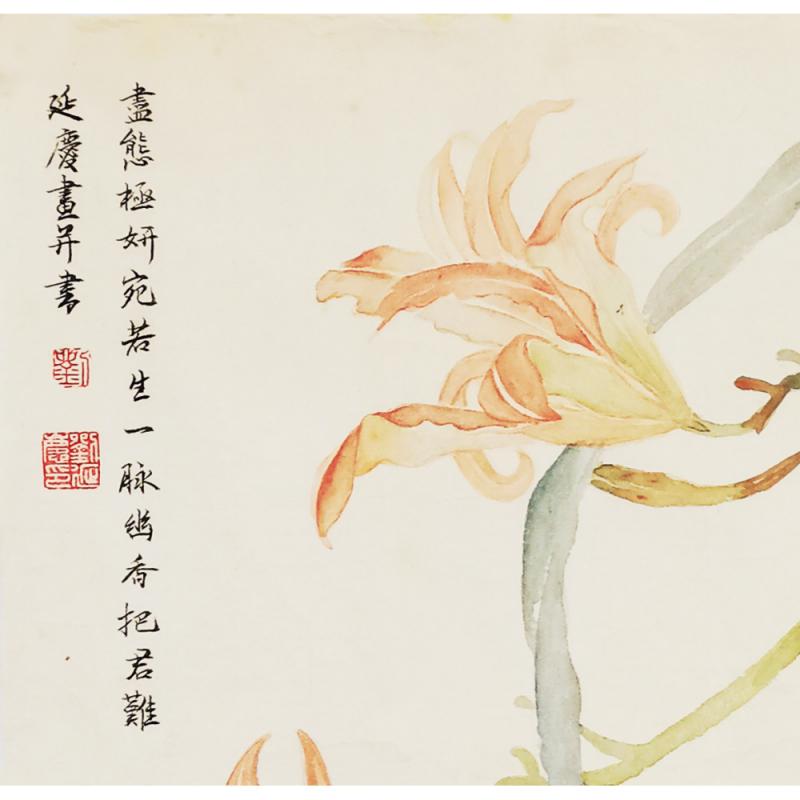 盡態極妍宛若生一脉幽香把君難
延慶畫并書
劉
劉延慶印